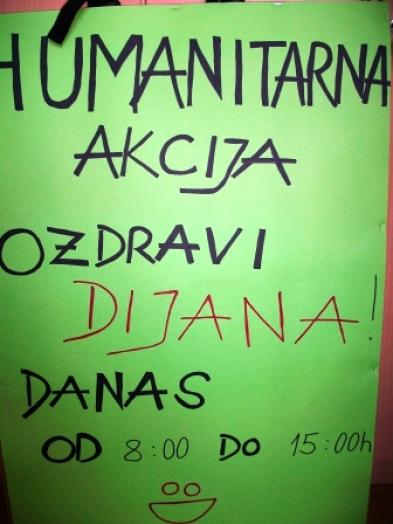 HUMANITARNA
AKCIJA
OZDRAVI
DIJANA!
DANAS
OD 8:00 DO 15:00h